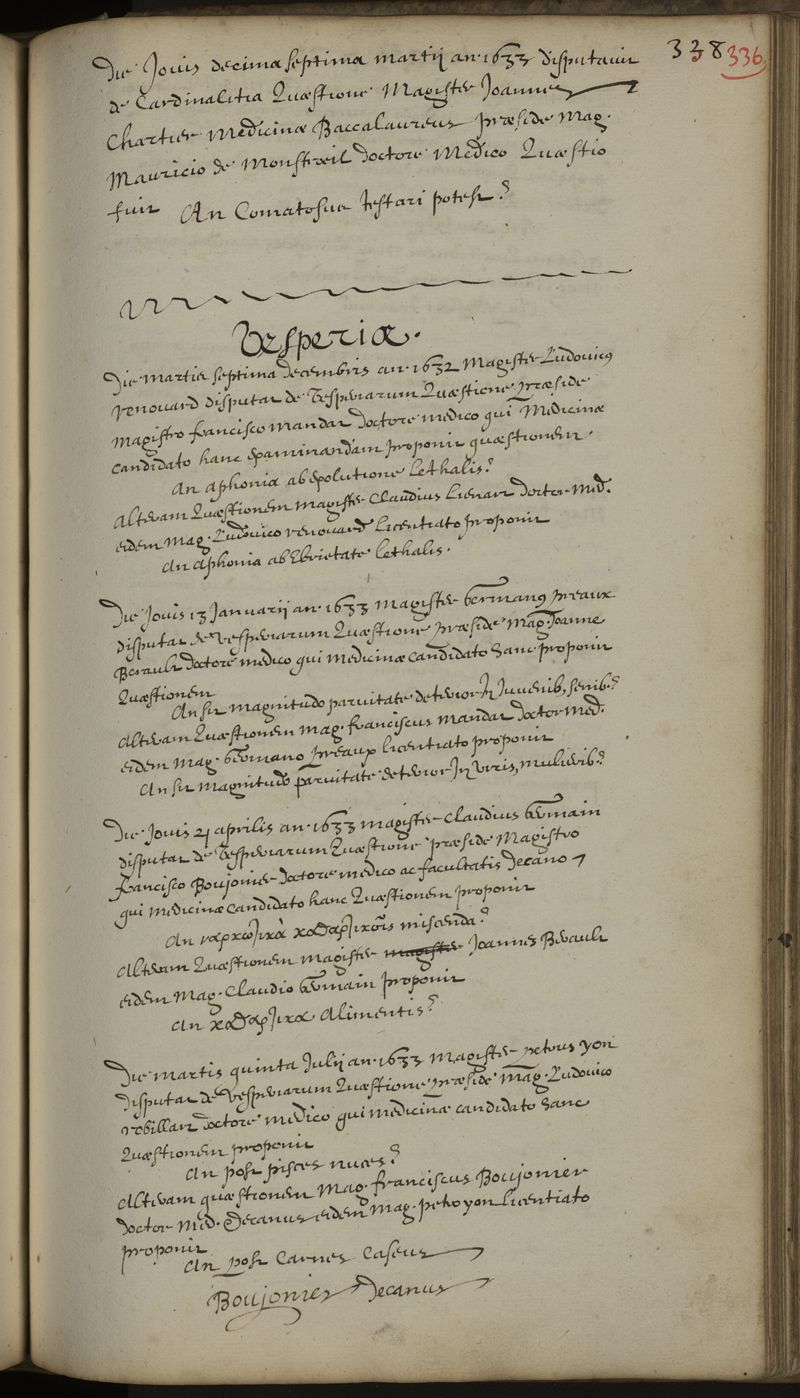 338 336
Die Jovis decima septima martij an. 1633 disputavit
de Cardinalitia Quæstione Magister Joannes
Chartier Medicinæ Baccalaureus Præside Mag.
Mauricio de Monstreil doctore Medico Quæstio
fuit An Comatosus testari potest?
Vesperiæ.
Die martis septima decembris an. 1632 Magister Ludovicus
renouard disputat de Vesperiarum Quæstione præside
magistro francisco mandat doctore medico qui Medicinæ
candidato hanc examinandam proponit quæstionem.
An aphonia ab exolutione lethalis?
Alteram Quæstionem magister Claudius Lienart doctor Med.
eidem Mag. Ludovico renouard Licentiato proponit
An aphonia ab Ebrietate lethalis.
Die Jovis 13 Januarij an. 1633 Magister Germanus preaux
disputat de vesperiarum Quæstione præside Mag. Joanne
Berault doctore medico qui medicinæ candidato hanc proponit
Quæstionem
An sit magnitudo parvitate deterior In Juvenib, senib.?
Alteram Quæstionem Mag. franciscus mandat doctor Med.
eidem Mag. Germano preaux licentiato proponit
An sit Magnitudo parvitate deterior In viris, mulierib?
Die Jovis 21 aprilis an. 1633 magister Claudius Germain
disputat de Vesperiarum Quæstione præside Magistro
francisco Boujonier doctore medico ac facultatis Decano
qui medicinæ candidato hanc Quæstionem proponit
An ναρκωτικὰ καθαρτικοῖς miscenda?
Alteram Quæstionem Magister magister Joannes Berault
eidem Mag. Claudio Germain proponit
An καθαρτικα Alimentis?
Die martis quinta Julij an. 1633 Magister petrus yon
disputat de Vesperiarum Quæstione, præside Mag. Ludovico
robillart doctore medico qui medicinæ candidato hanc
Quæstionem proponit
An post pisces nuces?
Alteram quæstionem Mag. franciscus Boujonier
doctor Med. Decanus eidem Mag. petro yon licentiato
proponit
An post Carnes Caseus
Boujonier Decanus